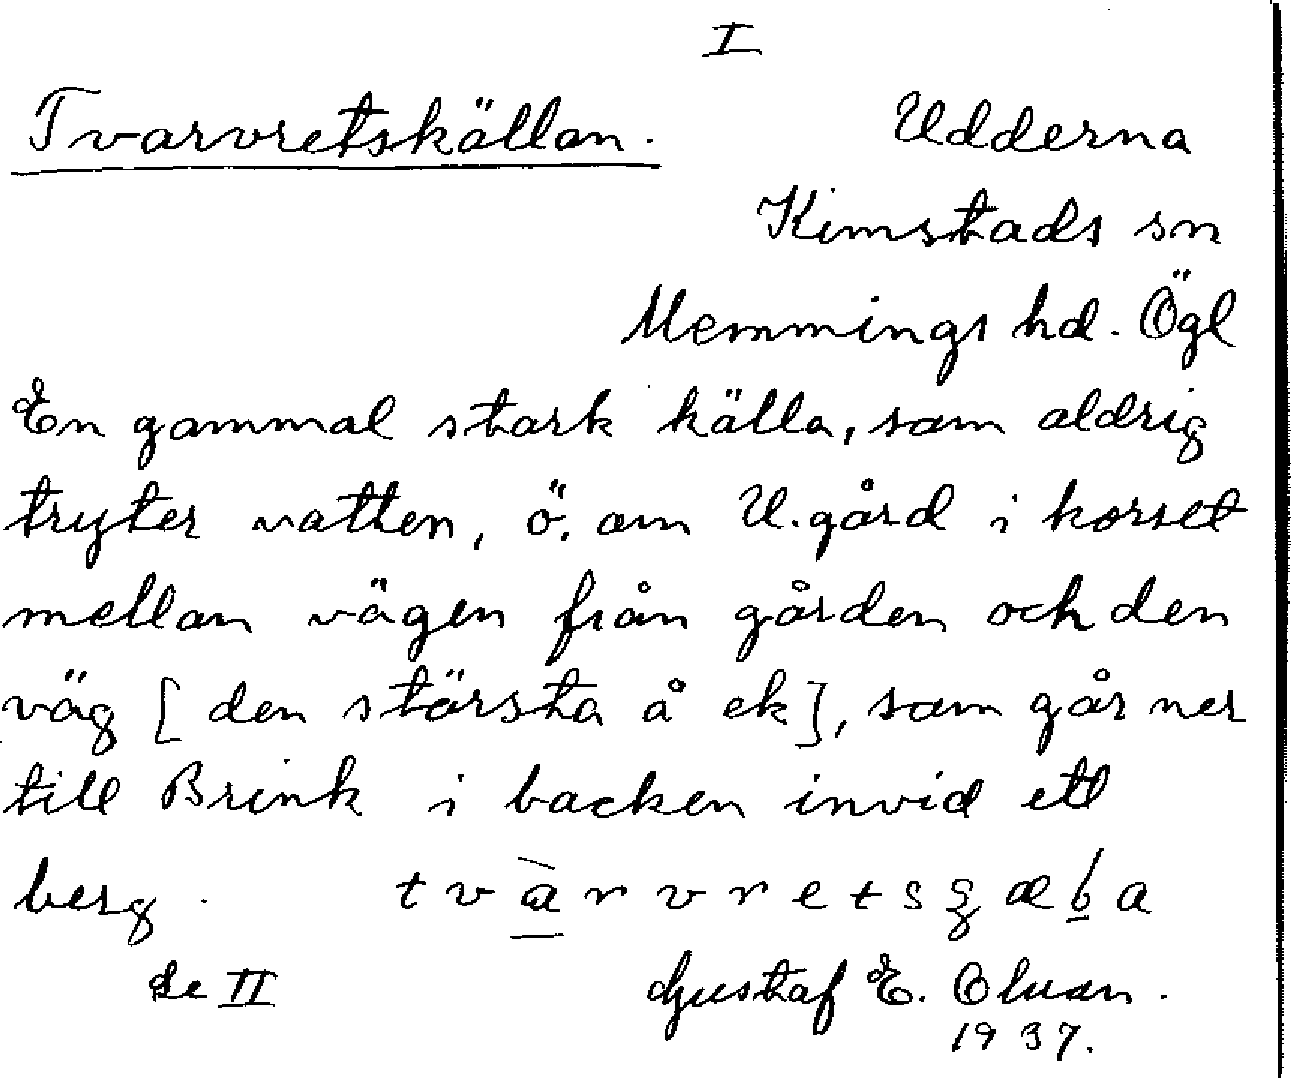 I
Tvarvretskällan. Udderna
Kimstads sn
Memmings hd. Ögl
En gammal stark källa, som aldrig
tryter vatten, ö. om U. gård i korset
mellan vägen från gården och den
väg [den största å ek], som går ner
till Brink i backen invid ett
berg.
Se II Gustaf E.
1937.